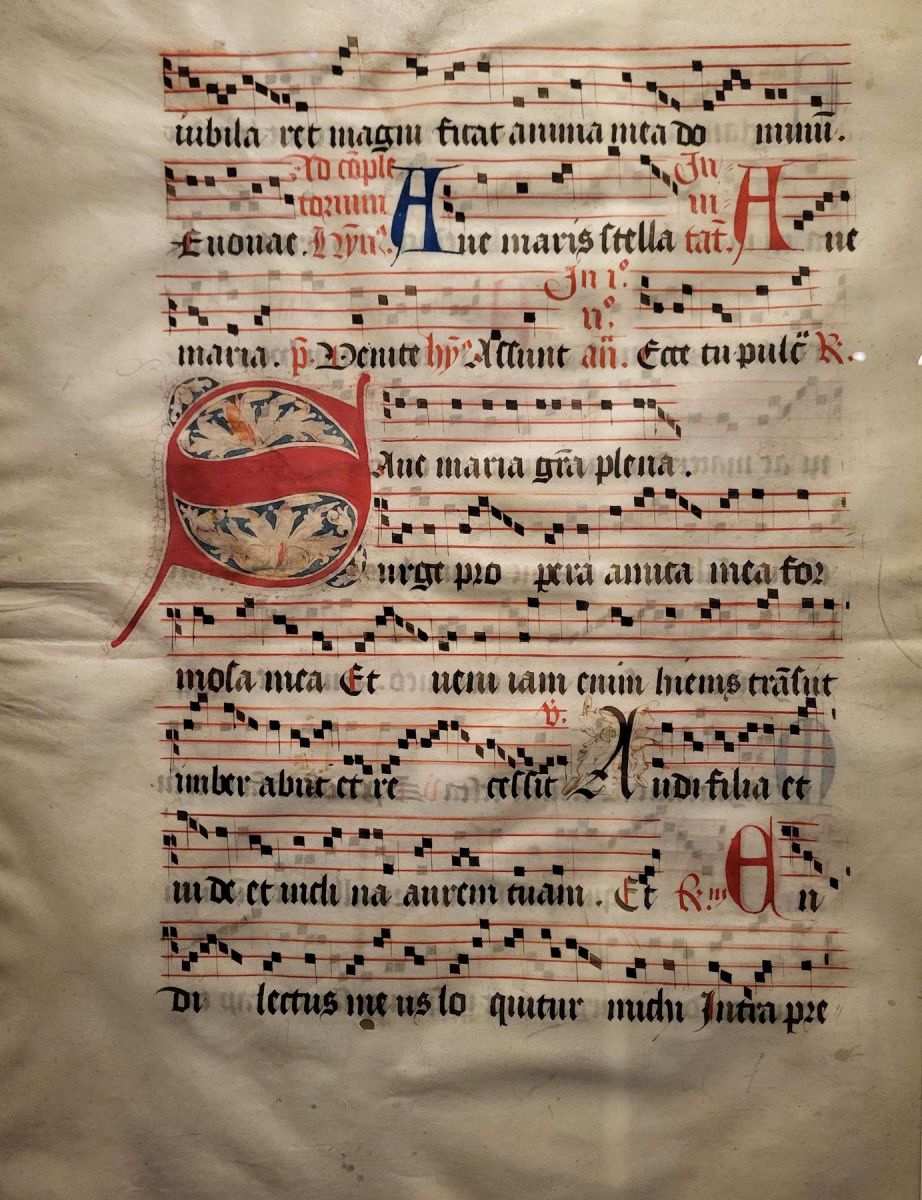 iubila ret magni ficat anima mea do minū.
Ad cōple
torium
Euouae. Hȳn⁹. Aue maris stella
In
ui
tat̄. Aue
maria. p̄. Venite hȳ⁹ Assunt
In 1⁰
n⁰.
añ. Ecce tu pulc̄ R.
Aue maria gr̄a plena.
Surge pro pera amica mea for
mosa mea Et ueni iam enim hiems trāsiit
imber abiit et re cessit
v̄. Audi filia et
uide et incli na aurem tuam. Et R. En
di lectus me us lo quitur michi Intra pre